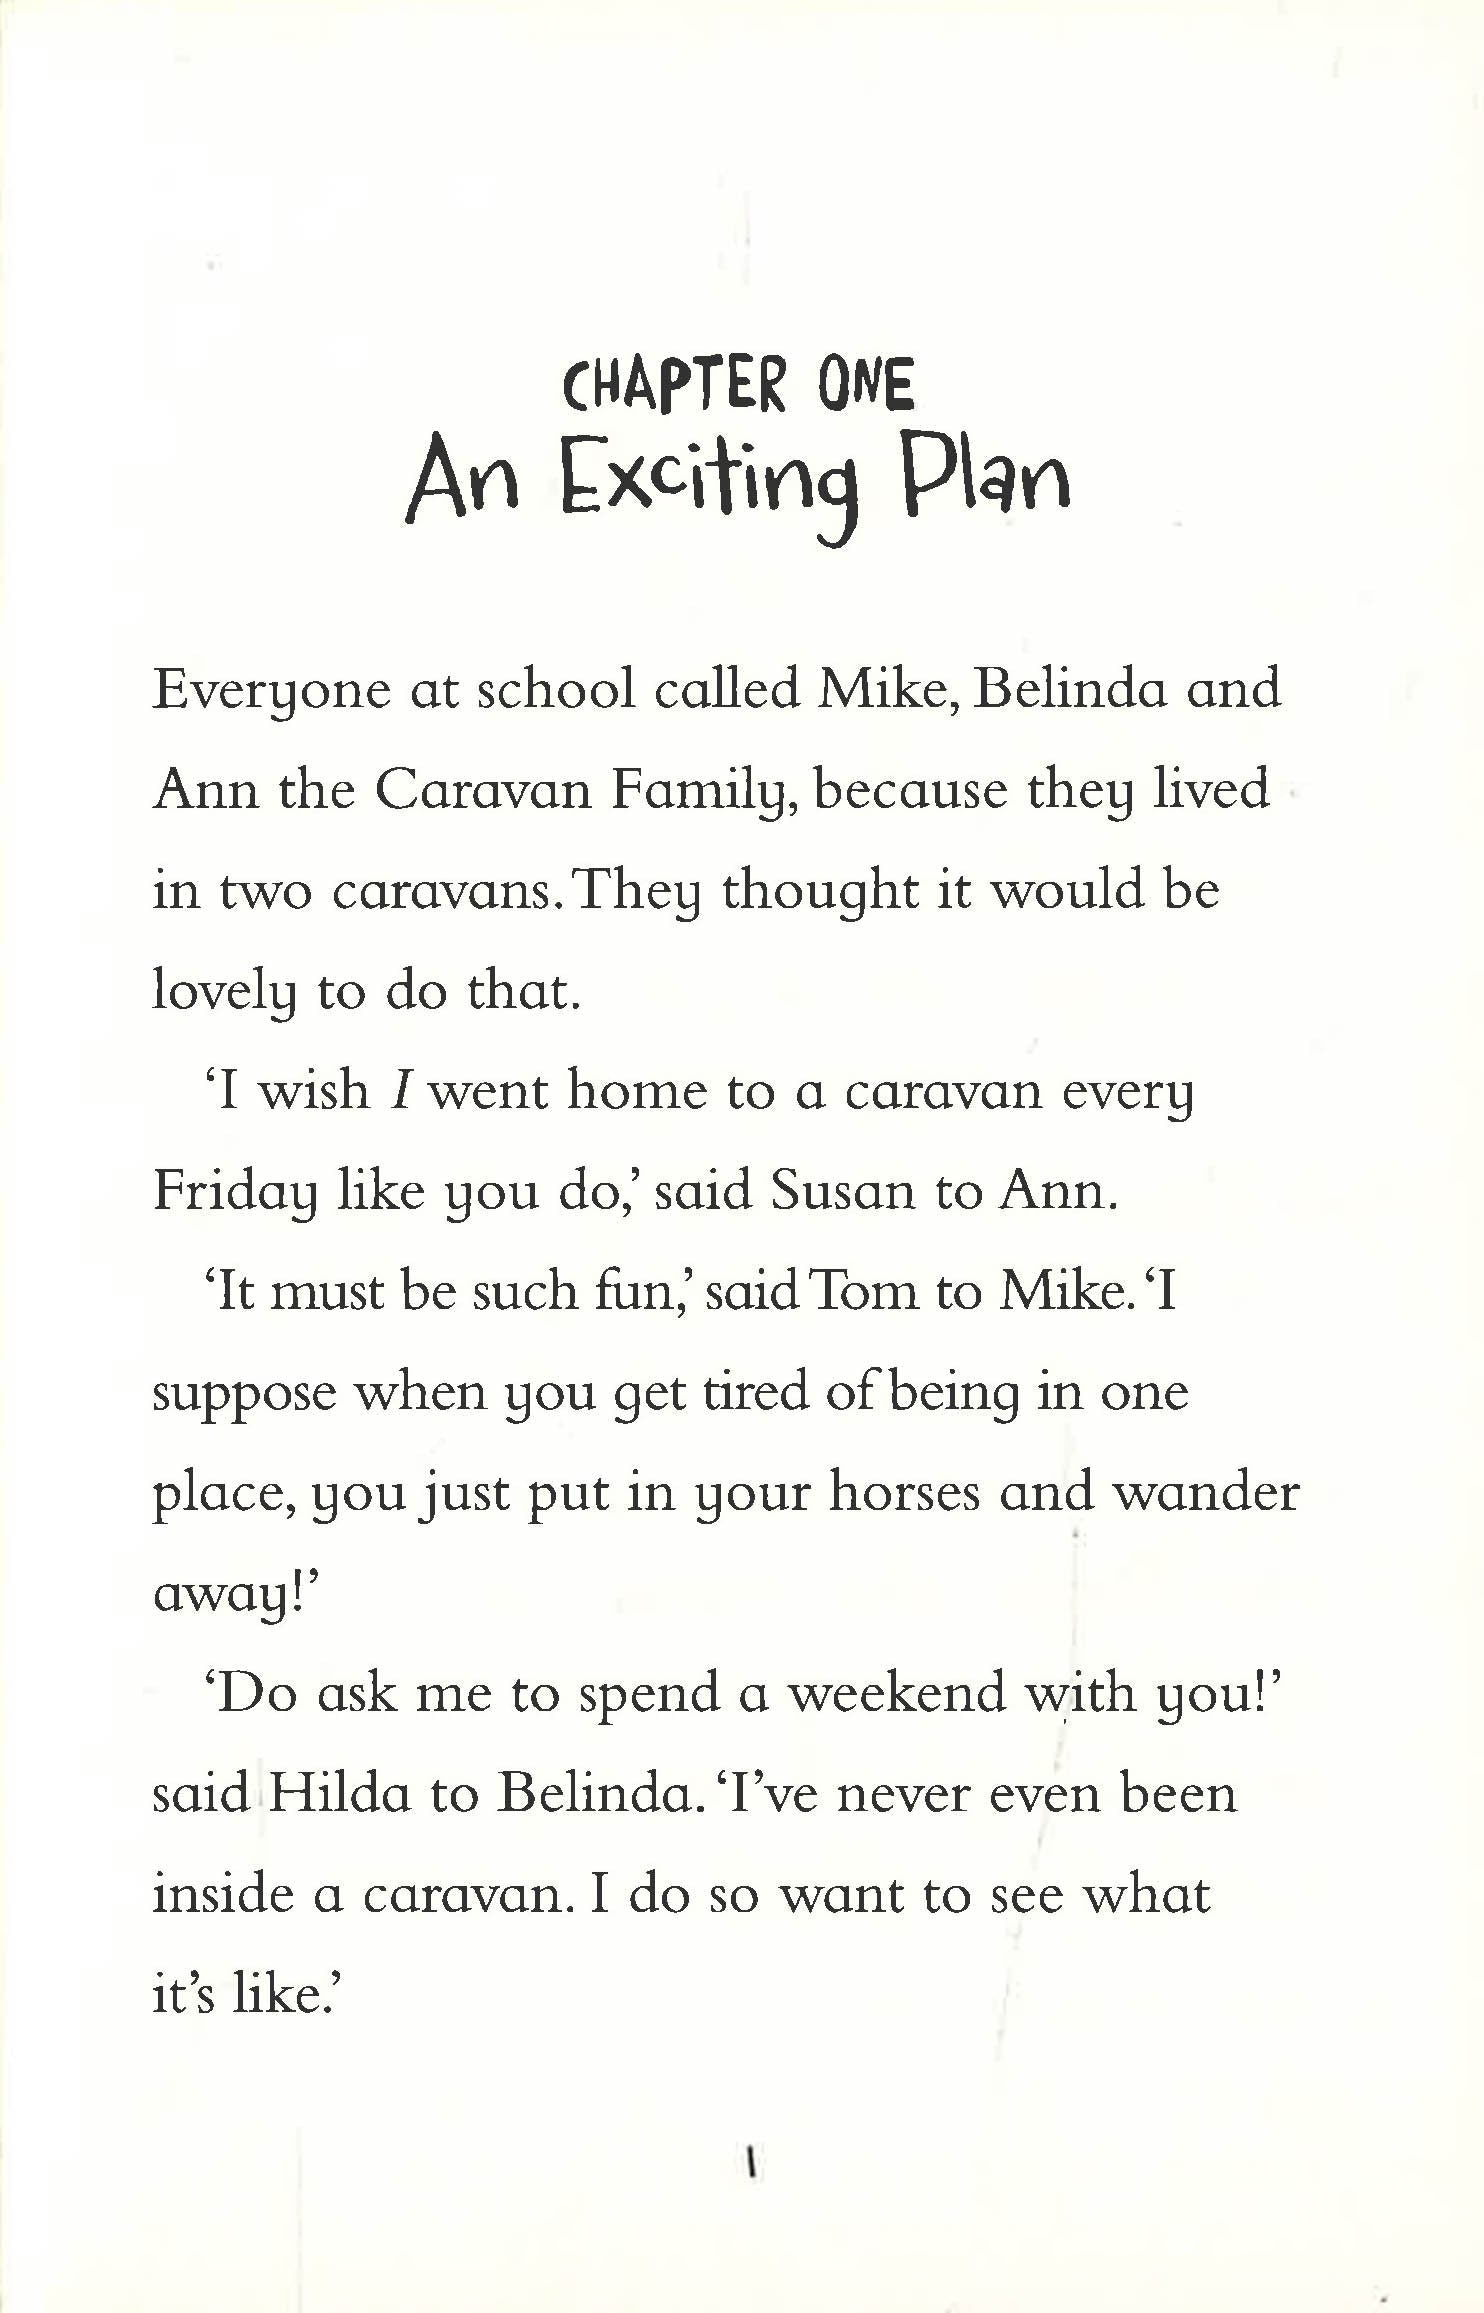 CHAPTER ONE
An Exciting Plan
Everyone at school called Mike, Belinda and
Ann the Caravan Family, because they lived
in two caravans. They thought it would be
lovely to do that.
‘I wish I went home to a caravan every
Friday like you do,’ said Susan to Ann.
‘It must be such fun,’ said Tom to Mike. ‘I
suppose when you get tired of being in one
place, you just put in your horses and wander
away!’
‘Do ask me to spend a weekend with you!’
said Hilda to Belinda. ‘I’ve never even been
inside a caravan. I do so want to see what
it’s like.’
1